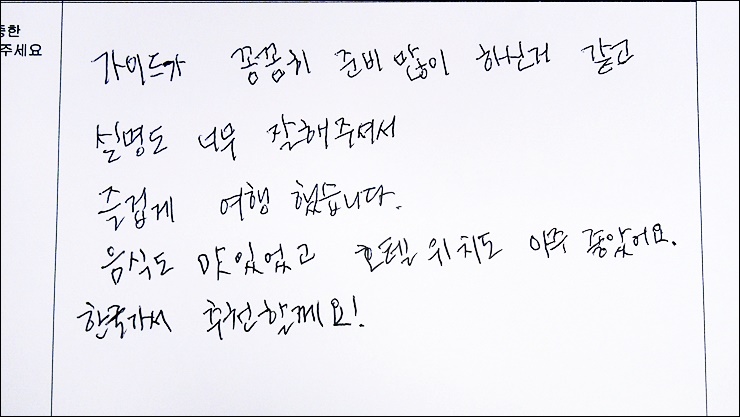 중한
주세요
가이드가 꼼꼼히 준비 많이 하신거 같고
설명도 너무 잘해주셔서
즐겁게 여행 했습니다.
음식도 맛있었고 호텔 위치도 아주 좋았어요.
한국가서 추천할께요!